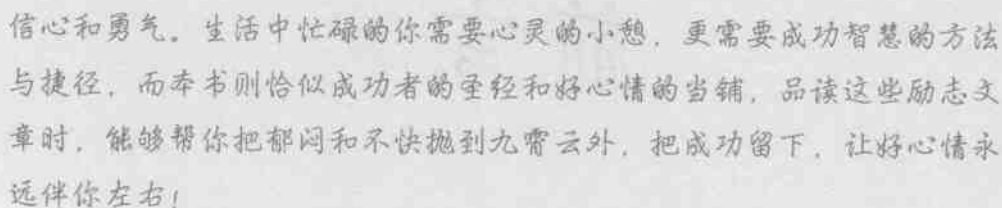 信心和勇气。生活中忙碌的你需要心灵的小憩，更需要成功智慧的方法
与捷径，而本书则恰似成功者的圣经和好心情的当铺，品读这些励志文
章时，能够帮你把郁闷和不快抛到九霄云外，把成功留下，让好心情永
远伴你左右！